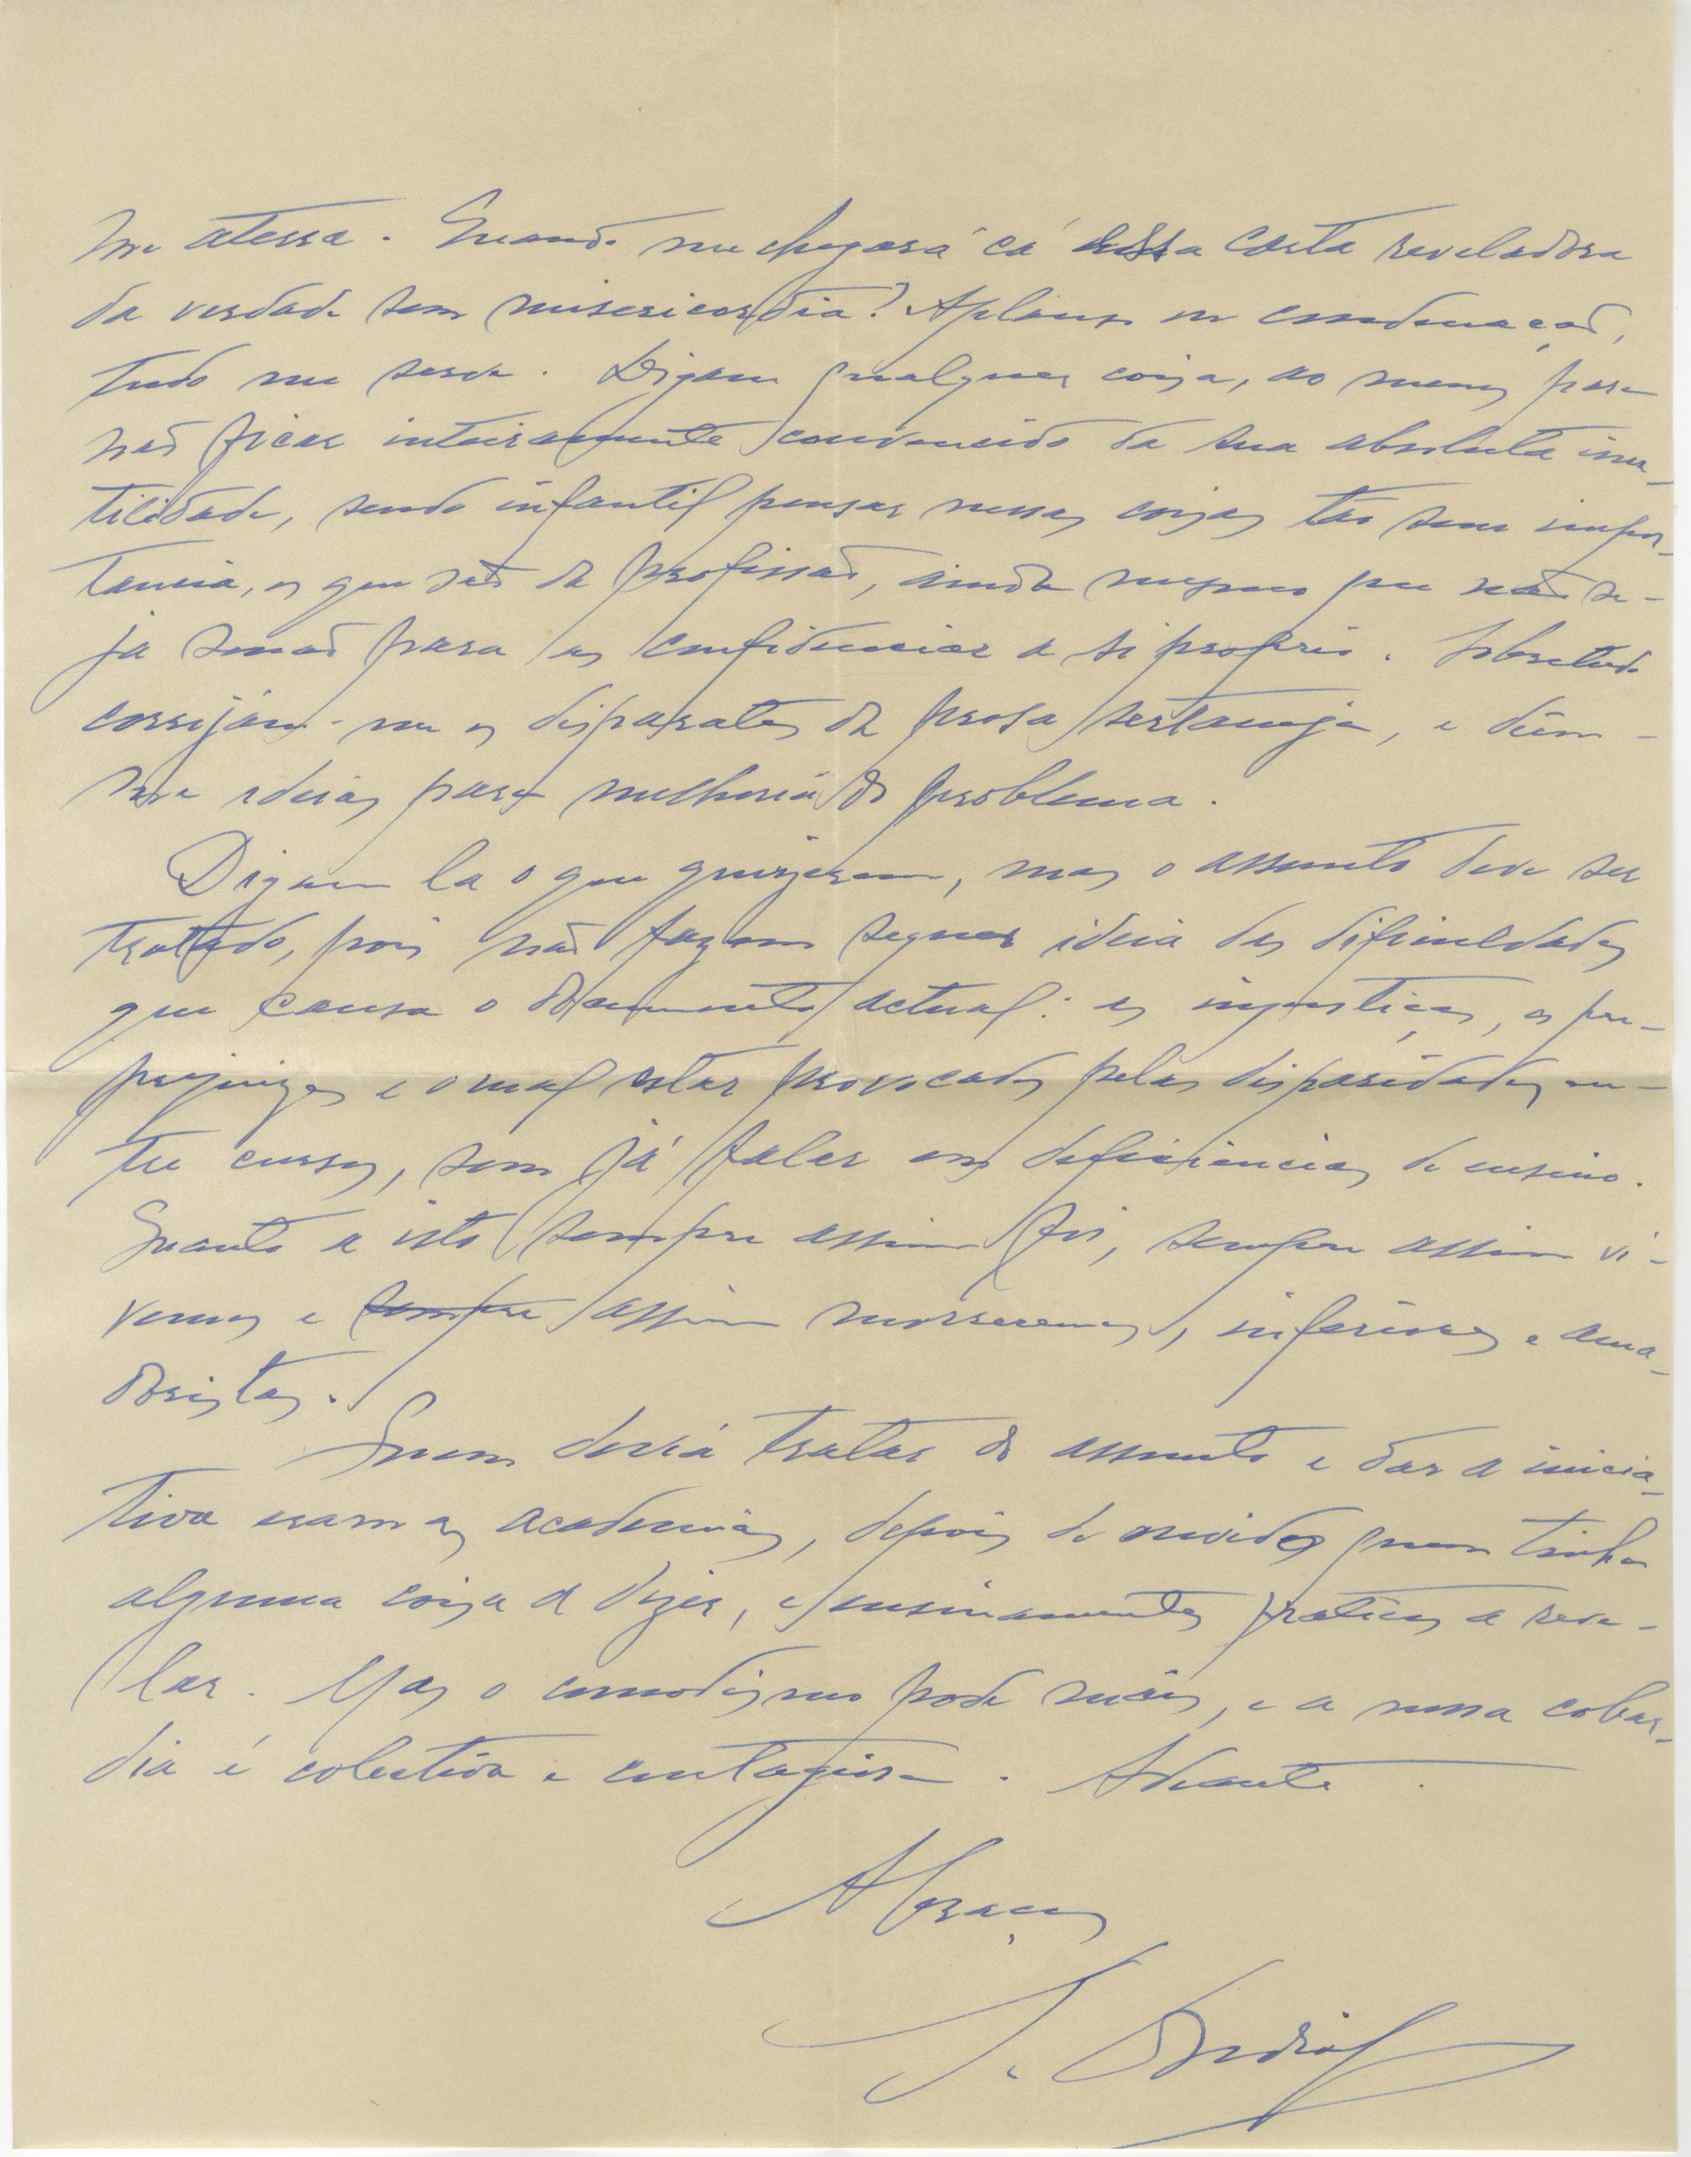 me atessa. Quando me chegará cá essa carta reveladora
da verdade sem misericordia? Aplauso ou condenação,
tudo me serve. Digam qualquer coisa, ao menos para
não ficar inteiramente convencido da sua absoluta inu-
tilidade, sendo infantil pensar nessas coisas tão sem impor-
tancia, os que são da profissão, ainda mesmo que não se-
ja senão para as confidenciar a si proprio. Sobretudo
corrijam-me os disparates da prosa sertaneja, e dêem-
me ideias para melhoria do problema.
Digam la o que quizerem, mas o assunto deve ser
tratado, pois não fazem sequer ideia das dificuldades
que causa o documento actual: as injustiças, os pre-
prejuizos e o mal estar provocados pelas disparidades en-
tre cursos, sem já falar em deficiencias de ensino.
Quanto a isto sempre assim foi, sempre assim vi-
vemos e sempre assim morreremos, inferiores e ama-
doristas.
Quem devia tratar do assunto e dar a inicia-
tiva eram as academias, depois de ouvidos quem tinha
alguma coisa a dizer, e ensinamentos praticos a reve-
lar. Mas o comodismo pode mais, e a nossa cobar-
dia é colectiva e contagiosa. Adeante.
Abraços